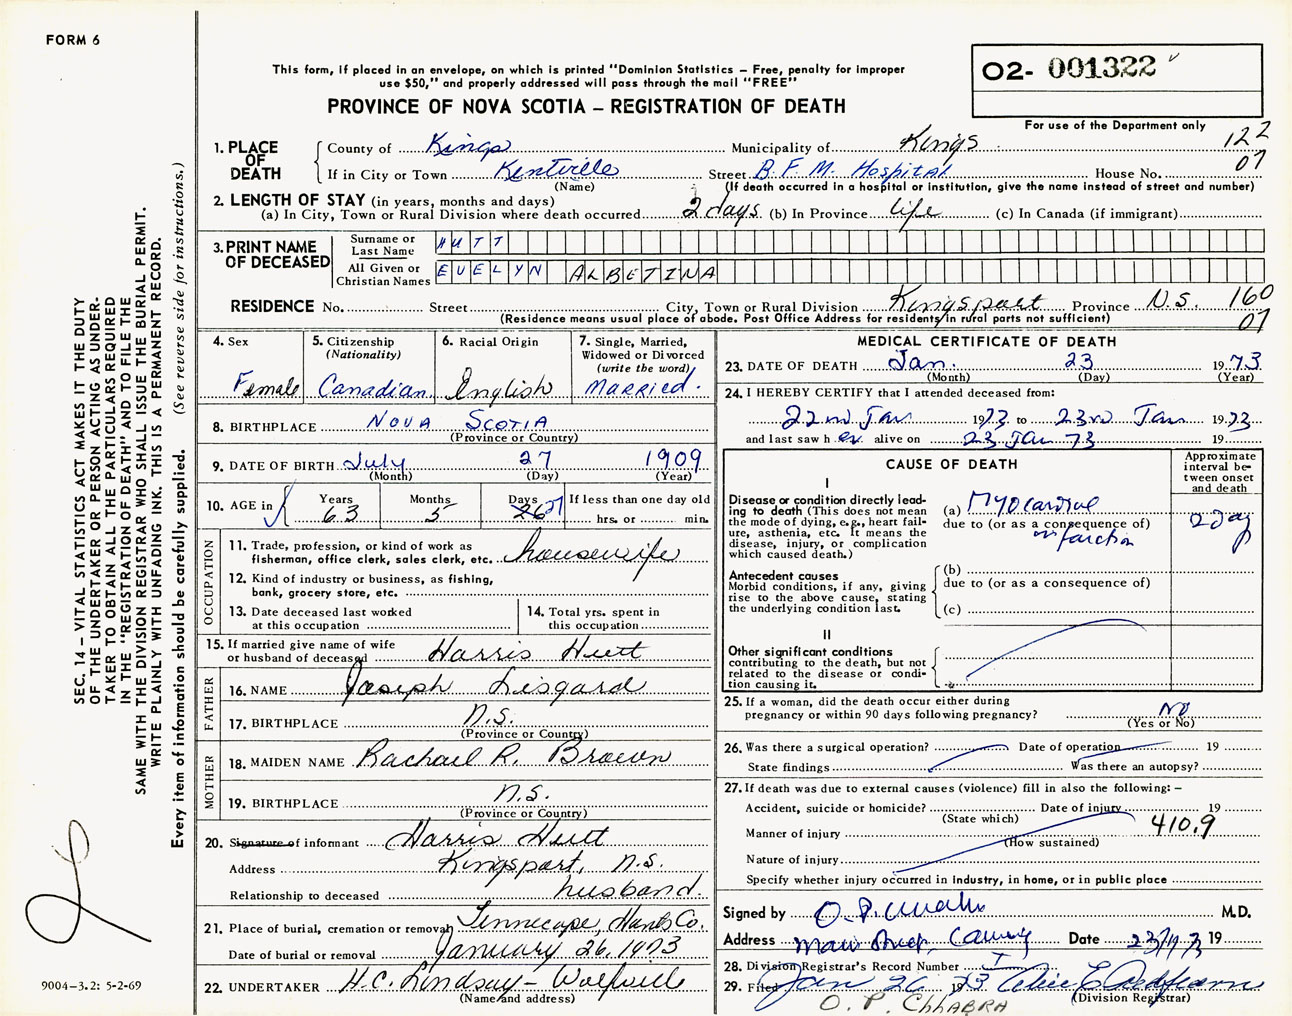 FORM 6
This form, if placed in an envelope, on which is printed "Dominion Statistics – Free, penalty for improper
use $50," and properly addressed will pass through the mail "FREE"
PROVINCE OF NOVA SCOTIA – REGISTRATION OF DEATH
02- 001322
For use of the Department only
122
07
1. PLACE OF DEATH
County of Kings Municipality of Kings
If in City or Town Kentville Street B.F.M. Hospital House No.
(Name) (If death occurred in a hospital or institution, give the name instead of street and number)
2. LENGTH OF STAY (in years, months and days)
(a) In City, Town or Rural Division where death occurred 2 days (b) In Province life (c) In Canada (if immigrant)
3. PRINT NAME OF DECEASED
Surname or Last Name HUTT
All Given or Christian Names EVELYN ALBETINA
RESIDENCE No. Street City, Town or Rural Division Kingsport Province N.S. 160
07
(Residence means usual place of abode. Post Office Address for residents in rural parts not sufficient)
4. Sex
Female
5. Citizenship
(Nationality)
Canadian
6. Racial Origin
English
7. Single, Married,
Widowed or Divorced
(write the word)
Married.
8. BIRTHPLACE NOVA SCOTIA
(Province or Country)
9. DATE OF BIRTH July 27 1909
(Month) (Day) (Year)
10. AGE in Years Months Days If less than one day old
63 5 26 27 hrs. or min.
OCCUPATION
11. Trade, profession, or kind of work as
fisherman, office clerk, sales clerk, etc. housewife
12. Kind of industry or business, as fishing,
bank, grocery store, etc.
13. Date deceased last worked
at this occupation
14. Total yrs. spent in
this occupation
15. If married give name of wife
or husband of deceased Harris Hutt
FATHER
16. NAME Joseph Lisgard
17. BIRTHPLACE N.S.
(Province or Country)
MOTHER
18. MAIDEN NAME Rachael R. Brown
19. BIRTHPLACE N.S.
(Province or Country)
20. Signature of informant Harris Hutt
Address Kingsport, N.S.
Relationship to deceased husband.
21. Place of burial, cremation or removal Tennecape, Hants Co.
Date of burial or removal January 26, 1973
22. UNDERTAKER H.C. Lindsay – Wolfville
(Name and address)
MEDICAL CERTIFICATE OF DEATH
23. DATE OF DEATH Jan. 23 1973
(Month) (Day) (Year)
24. I HEREBY CERTIFY that I attended deceased from:
22nd Jan 1973 to 23rd Jan 1973
and last saw her alive on 23 Jan 73 19
CAUSE OF DEATH
Approximate
interval be-
tween onset
and death
I
Disease or condition directly lead-
ing to death (This does not mean
the mode of dying, e.g., heart fail-
ure, asthenia, etc. It means the
disease, injury, or complication
which caused death.)
(a) Myocardial
due to (or as a consequence of)
infarction
2 day
Antecedent causes
Morbid conditions, if any, giving
rise to the above cause, stating
the underlying condition last.
(b)
due to (or as a consequence of)
(c)
II
Other significant conditions
contributing to the death, but not
related to the disease or condi-
tion causing it.
25. If a woman, did the death occur either during
pregnancy or within 90 days following pregnancy? NO
(Yes or No)
26. Was there a surgical operation? Date of operation 19
State findings Was there an autopsy?
27. If death was due to external causes (violence) fill in also the following: –
Accident, suicide or homicide? Date of injury 19
(State which)
Manner of injury 410.9
(How sustained)
Nature of injury
Specify whether injury occurred in Industry, in home, or in public place
Signed by M.D.
Address Date 23/1/73 19
28. Division Registrar's Record Number
29. Filed Jan 26 1973
(Division Registrar)
O. P. CHHABRA
SEC. 14 – VITAL STATISTICS ACT MAKES IT THE DUTY
OF THE UNDERTAKER OR PERSON ACTING AS UNDER-
TAKER TO OBTAIN ALL THE PARTICULARS REQUIRED
IN THE "REGISTRATION OF DEATH" AND TO FILE THE
SAME WITH THE DIVISION REGISTRAR WHO SHALL ISSUE THE BURIAL PERMIT.
WRITE PLAINLY WITH UNFADING INK. THIS IS A PERMANENT RECORD.
Every item of information should be carefully supplied. (See reverse side for instructions.)
9004–3.2: 5-2-69